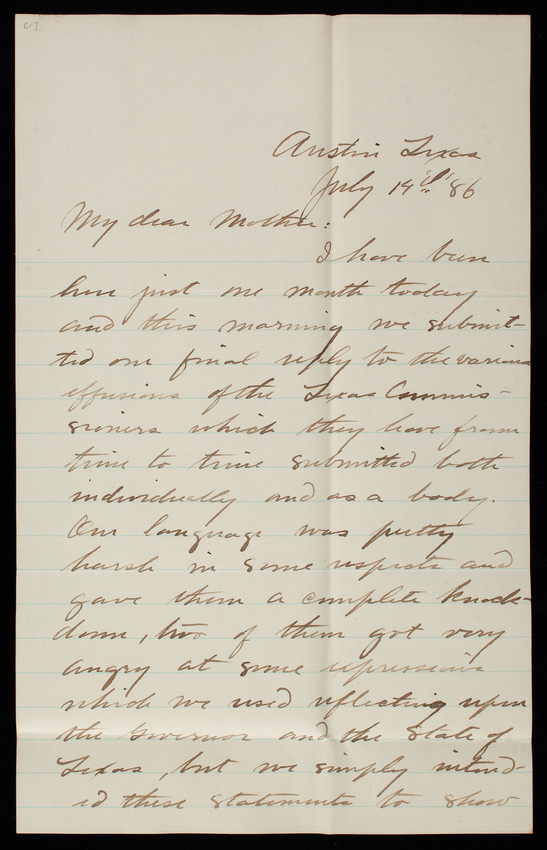 Austin Texas
July 14th '86
My dear Mother:
I have been
here just one month today
and this morning we submit-
ted our final reply to the various
effusions of the Texas Commis-
sioners which they have from
time to time submitted both
individually and as a body.
Our language was pretty
harsh in some respects and
gave them a complete knock-
down, two of them got very
angry at some expressions
which we used reflecting upon
the Governor and the State of
Texas, but we simply intend-
ed these statements to show